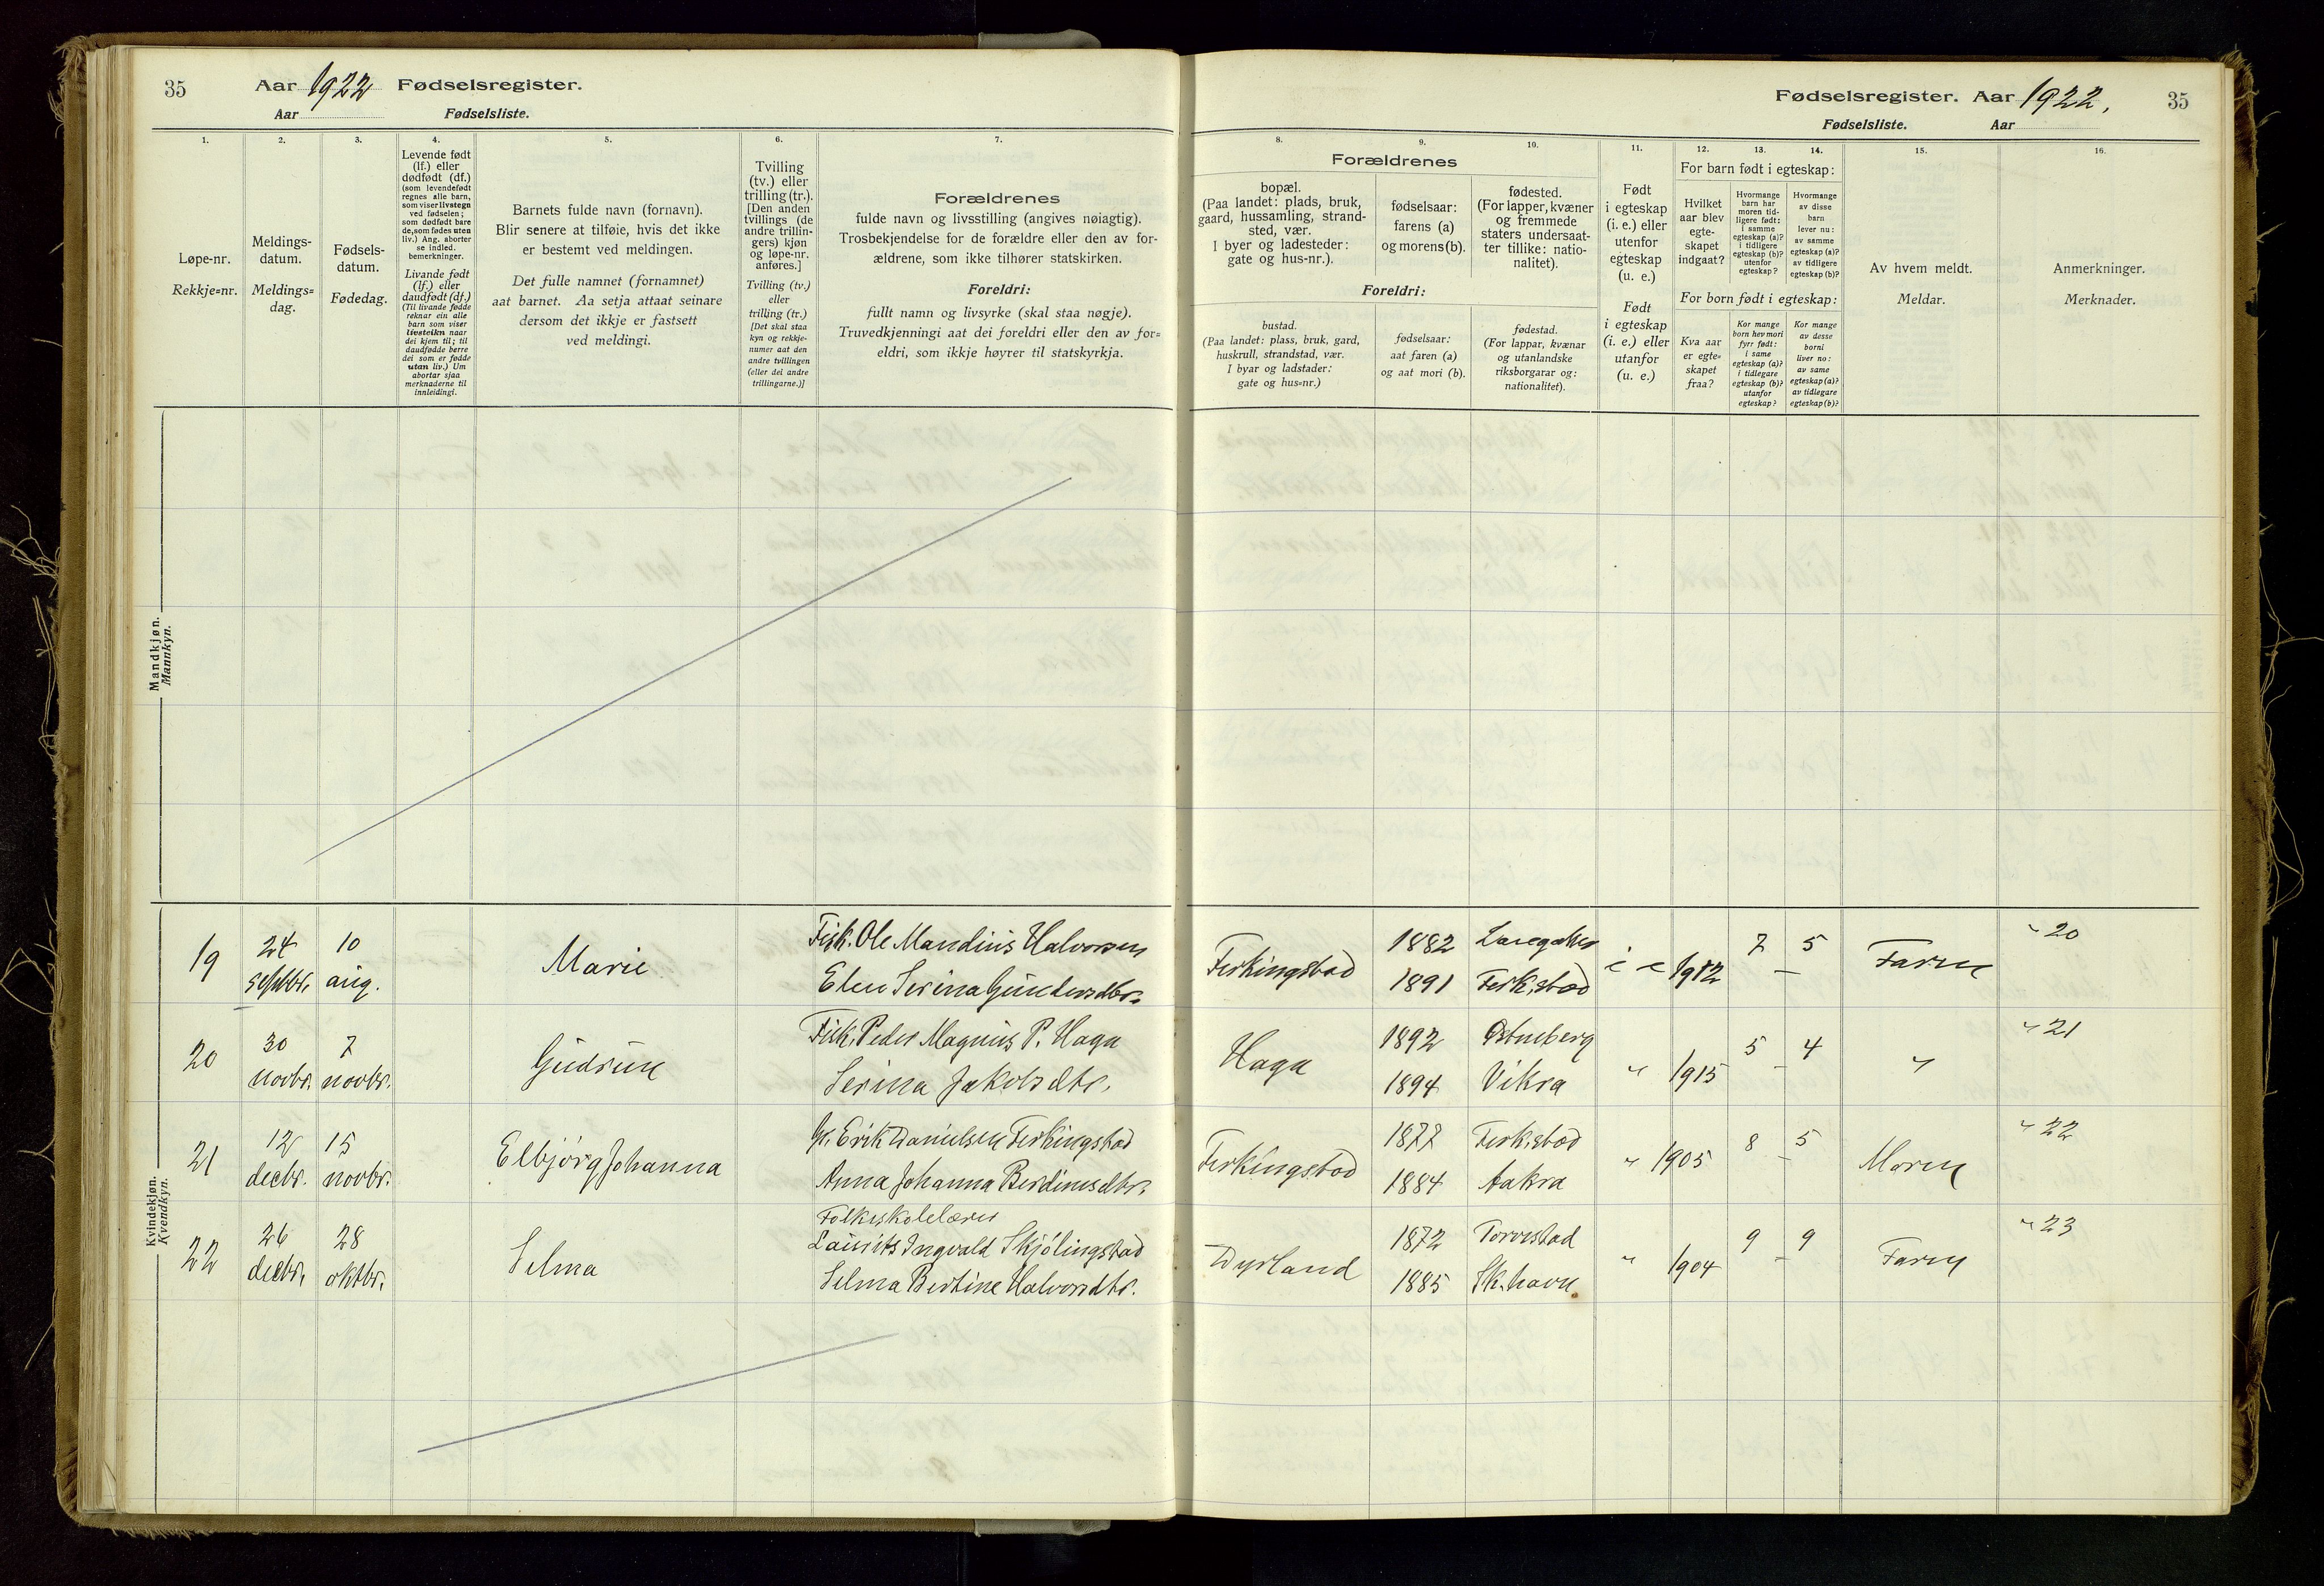 35
Aar 1922 Fødselsregister.
Aar Fødselsliste.
1.
Løpe-nr.
Rekkje=nr.
2.
Meldings-
datum.
Meldings=
dag.
3.
Fødsels-
datum.
Fødedag.
4.
Levende født
(lf.) eller
dødfødt (df.)
(som levendefødt
regnes alle barn,
som viser livstegn
ved fødselen;
som dødfødt bare
de, som fødes uten
liv.) Ang. aborter
se indled.
bemerkninger.
Livande født
(lf.) eller
daudfødt (df.)
(Til livande fødde
reknar ein alle
barn som viser
livsteikn naar
dei kjem til; til
daudfødde berre
dei som er fødde
utan liv.) Um
abortar sjaa
merknaderne til
innleidingi.
5.
Barnets fulde navn (fornavn).
Blir senere at tilføie, hvis det ikke
er bestemt ved meldingen.
Det fulle namnet (fornamnet)
aat barnet. Aa setja attaat seinare
dersom det ikkje er fastsett
ved meldingi.
6.
Tvilling
(tv.) eller
trilling (tr.).
[Den anden
tvillings (de
andre trillin-
gers) kjøn
og løpe-nr.
anføres.]
Tvilling (tv.)
eller
trilling (tr.)
[Det skal staa
kyn og rekkje-
numer aat den
andre tvillingen
(eller dei andre
trillingarne.)]
7.
Forældrenes
fulde navn og livsstilling (angives nøiagtig).
Trosbekjendelse for de forældre eller den av for-
ældrene, som ikke tilhører statskirken.
Foreldri:
fullt namn og livsyrke (skal staa nøgje).
Truvedkjenningi aat dei foreldri eller den av for=
eldri, som ikkje høyrer til statskyrkja.
Mandkjøn.
Mannkyn.
Kvindekjøn.
Kvendkyn.
19
24 septbr.
10 aug.
Marie
Fisk. Ole Mandius Halvorsen
Elen Serina Gundersdtr.
20
30 novbr.
7 novbr.
Gudrun
Fisk. Peder Magnus P. Haga
Serina Jakobsdtr.
21
12 decbr.
15 novbr.
Elbjörg Johanna
Erik Danielsen Ferkingstad
Anna Johanna Berdinesdtr.
22
26 decbr.
28 oktbr.
Selma
Folkeskolelærer
Laurits Ingvald Skjölingstad
Selma Bertine Halvorsdtr.
Fødselsregister. Aar 1922.
35
Fødselsliste. Aar
Forældrenes
8.
bopæl.
(Paa landet: plads, bruk,
gaard, hussamling, strand-
sted, vær.
I byer og ladesteder:
gate og hus-nr.).
9.
fødselsaar:
farens (a)
og morens (b).
10.
fødested.
(For lapper, kvæner
og fremmede
staters undersaat-
ter tillike: natio-
nalitet).
Foreldri:
bustad.
(Paa landet: plass, bruk, gard,
huskrull, strandstad, vær.
I byar og ladstader:
gate og hus=nr.)
fødselsaar:
aat faren (a)
og aat mori (b).
fødestad.
(For lappar, kvænar
og utanlandske
riksborgarar og:
nationalitet).
11.
Født
i egteskap
(i. e.) eller
utenfor
egteskap
(u. e.)
Født
i egteskap
(i. e.) eller
utanfor
(u. e.)
12. 13. 14.
For barn født i egteskap:
Hvilket
aar blev
egte-
skapet
indgaat?
Hvormange
barn har
moren tid-
ligere født:
i samme
egteskap (a)?
i tidligere
egteskap (b)?
utenfor
egteskap?
Hvormange
av disse
barn
lever nu:
av samme
egteskap (a)?
av tidligere
egteskap (b)?
For born født i egteskap:
Kva aar
er egte=
skapet
fraa?
Kor mange
born hev mori
fyrr født:
i same
egteskap (a)?
i tidlegare
egteskap (b)?
utanfor
egteskap?
Kor mange
av desse
borni
liver no:
av same
egteskap (a)?
av tidlegare
egteskap (b)?
15.
Av hvem meldt.
Meldar.
16.
Anmerkninger.
Merknader.
Ferkingstad
1882
1891 Ferk.stad
i e 1912 7 - 5
Faren
" 20
Haga
1892
1894 Vikra
" 1915 5 - 4
"
" 21
Ferkingstad
1877 Ferk.stad
1884 Aakra
" 1905 8 - 5
Moren
" 22
Dyrland
1872 Torvestad
1885 Sk.havn.
" 1904 9 - 9
Faren
" 23